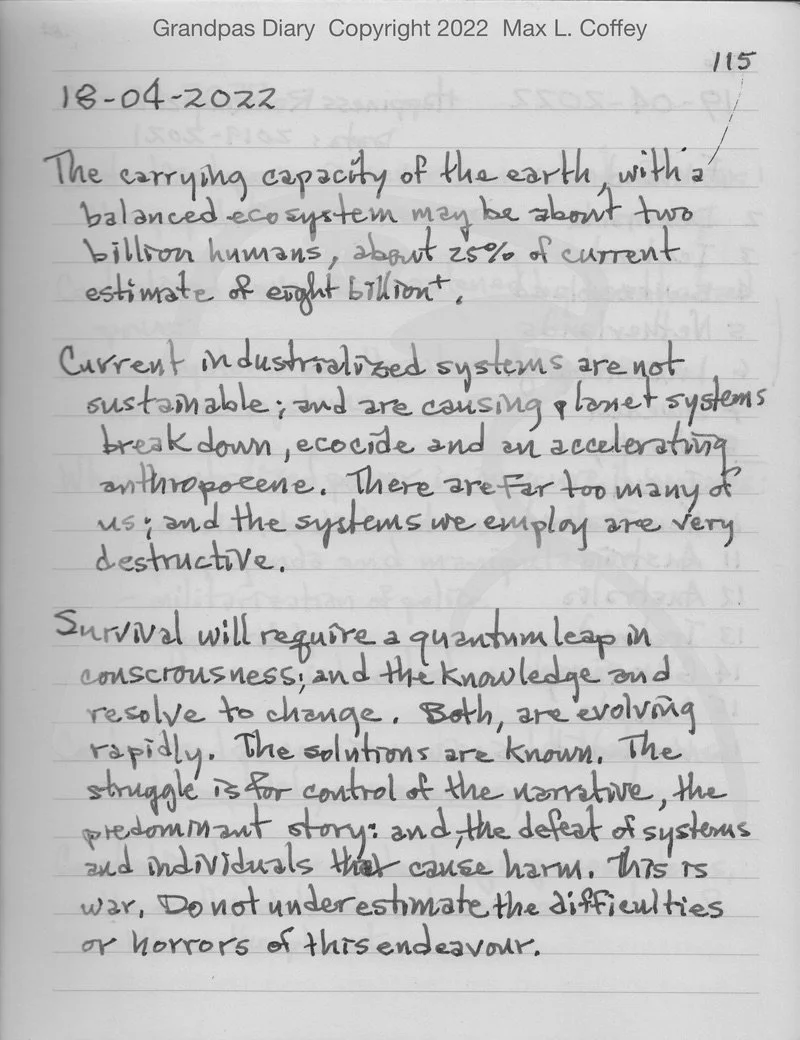 Grandpas Diary Copyright 2022 Max L. Coffey
115
18-04-2022
The carrying capacity of the earth, with a
balanced ecosystem may be about two
billion humans, about 25% of current
estimate of eight billion+.
Current industrialized systems are not
sustainable; and are causing planet systems
breakdown, ecocide and an accelerating
anthropocene. There are far too many of
us; and the systems we employ are very
destructive.
Survival will require a quantum leap in
consciousness; and the knowledge and
resolve to change. Both, are evolving
rapidly. The solutions are known. The
struggle is for control of the narrative, the
predominant story: and, the defeat of systems
and individuals that cause harm. This is
war. Do not underestimate the difficulties
or horrors of this endeavour.